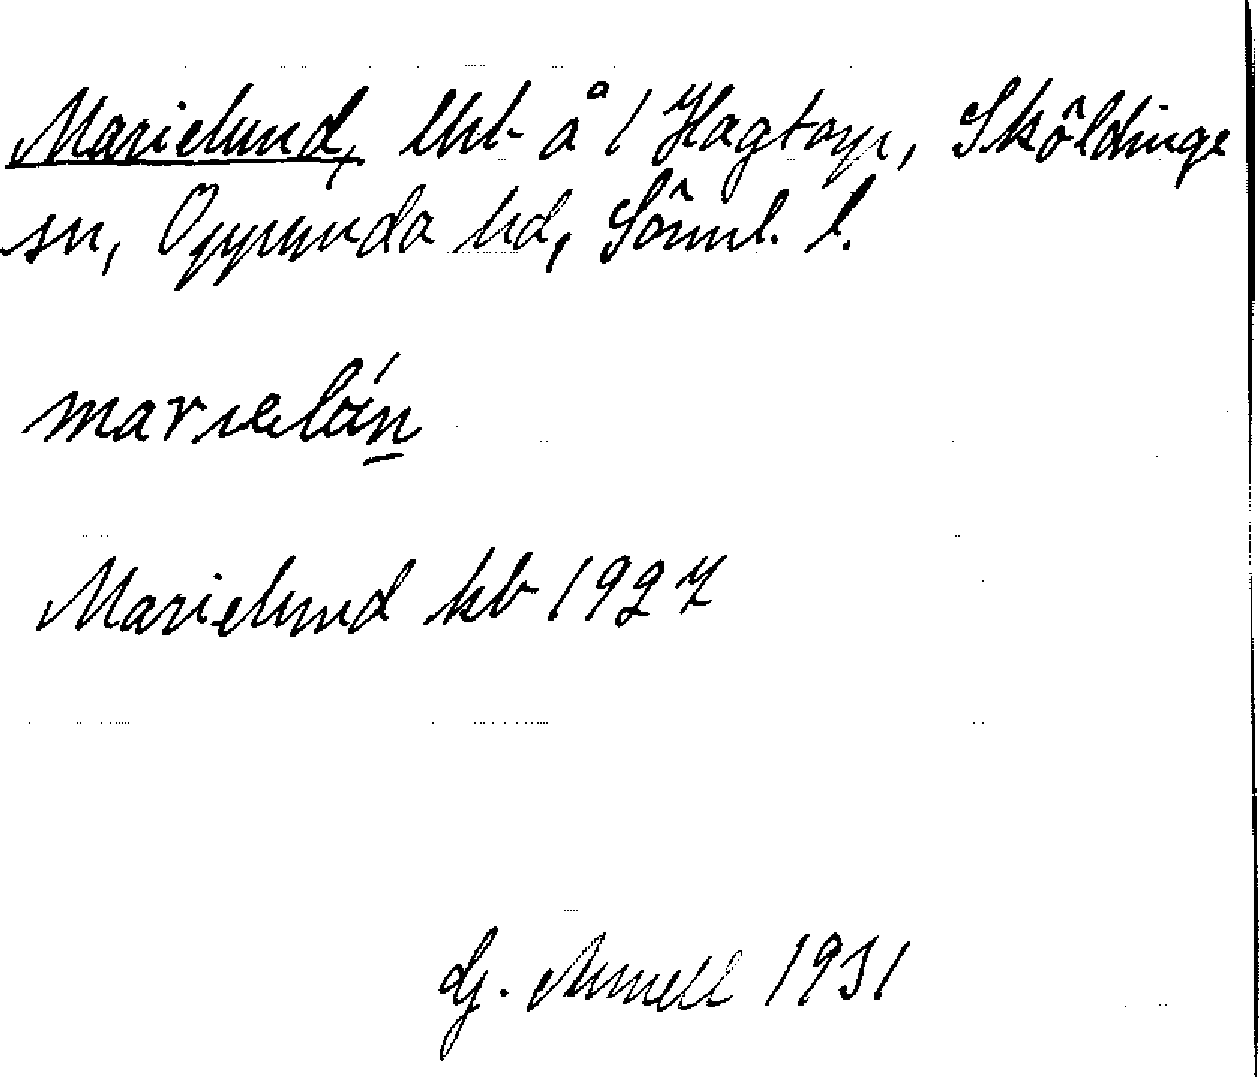 Marielund, lht å 1 Hagtorp, Sköldinge
sn, Oppunda hd, Söml. l.
marielún
Marielund kb 1927
G. Arnell 1931